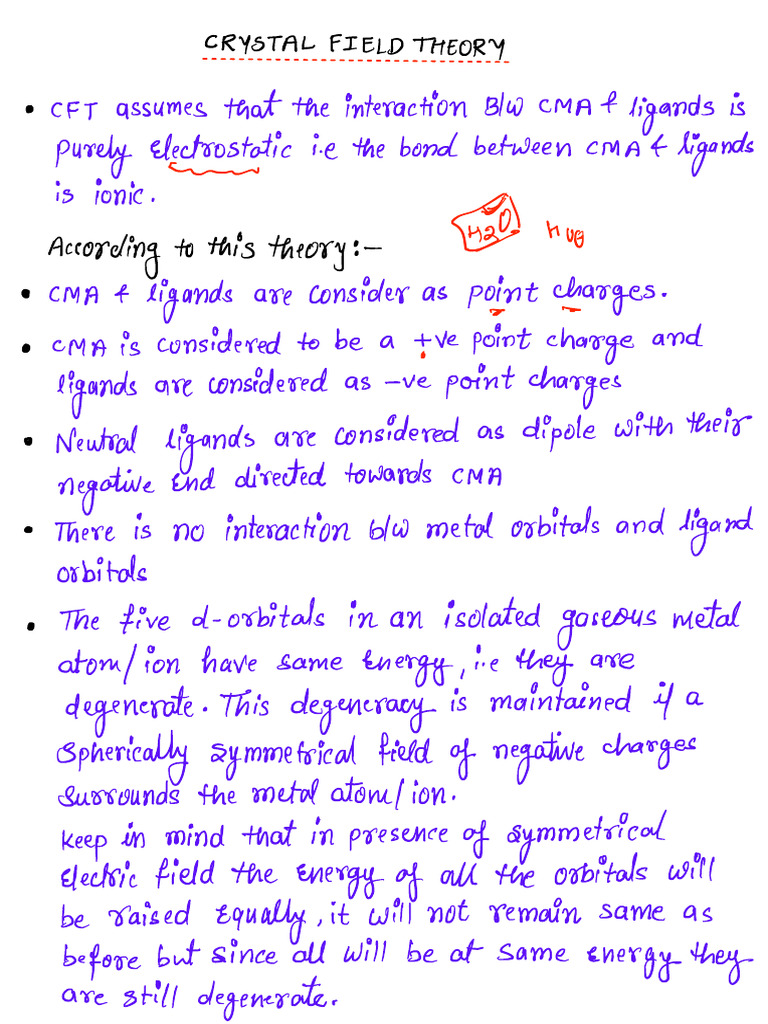 CRYSTAL FIELD THEORY
• CFT assumes that the interaction B/w CMA & ligands is
purely Electrostatic i.e the bond between CMA & ligands
is ionic.
H2O
According to this theory:-
• CMA & ligands are consider as point charges.
• CMA is considered to be a +ve point charge and
ligands are considered as -ve point charges
• Neutral ligands are considered as dipole with their
negative End directed towards CMA
• There is no interaction b/w metal orbitals and ligand
orbitals
• The five d-orbitals in an isolated gaseous metal
atom/ion have same Energy, i.e they are
degenerate. This degeneracy is maintained if a
Spherically symmetrical field of negative charges
surrounds the metal atom/ion.
Keep in mind that in presence of symmetrical
Electric field the Energy of all the orbitals will
be raised Equally, it will not remain same as
before but since all will be at same energy they
are still degenerate.